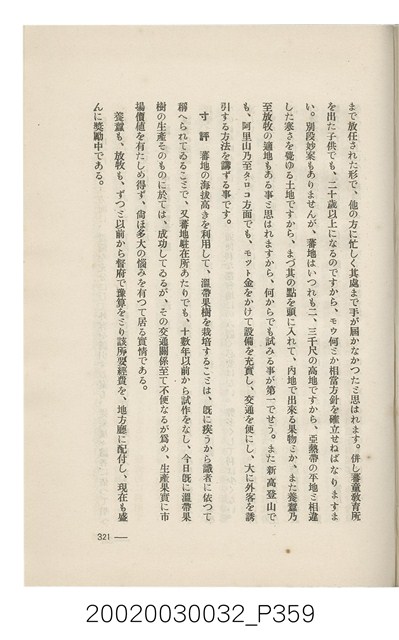 まで放任された形で、他の方に忙しく其處まで手が届かなかつたと思はれます。併し蕃童敎育所
を出た子供でも、二十歲以上になるのですから、モウ何とか相當方針を確立せねばなりますま
い。別段妙案もありませんが、蕃地はいつれも二、三千尺の高地ですから、亞熱帶の平地と相違
した寒さを覺ゆる土地ですから、まづ其の點を頭に入れて、內地で出來る果物とか、また養蠶乃
至放牧の適地もある事と思はれますから、何からでも試みる事が第一でせう。また新高登山で
も、阿里山乃至タロコ方面でも、モツト金をかけて設備を充實し、交通を便にし、大に外客を誘
引する方法を講ずる事です。
寸評 蕃地の海拔高きを利用して、溫帶果樹を栽培することは、旣に疾うから識者に依つて
稱へられてゐることで、又蕃地駐在所あたりでも、十數年以前から試作をなし、今日旣に溫帶果
樹の生產そのものに於ては、成功してゐるが、その交通關係至て不便なるが爲め、生產果實に市
場價値を有たしめ得ず、尙ほ多大の惱みを有つて居る實情である。
養蠶も、放牧も、ずつと以前から督府で豫算をとり該所要經費を、地方廳に配付し、現在も盛
んに獎勵中である。
321 —
20020030032_P359